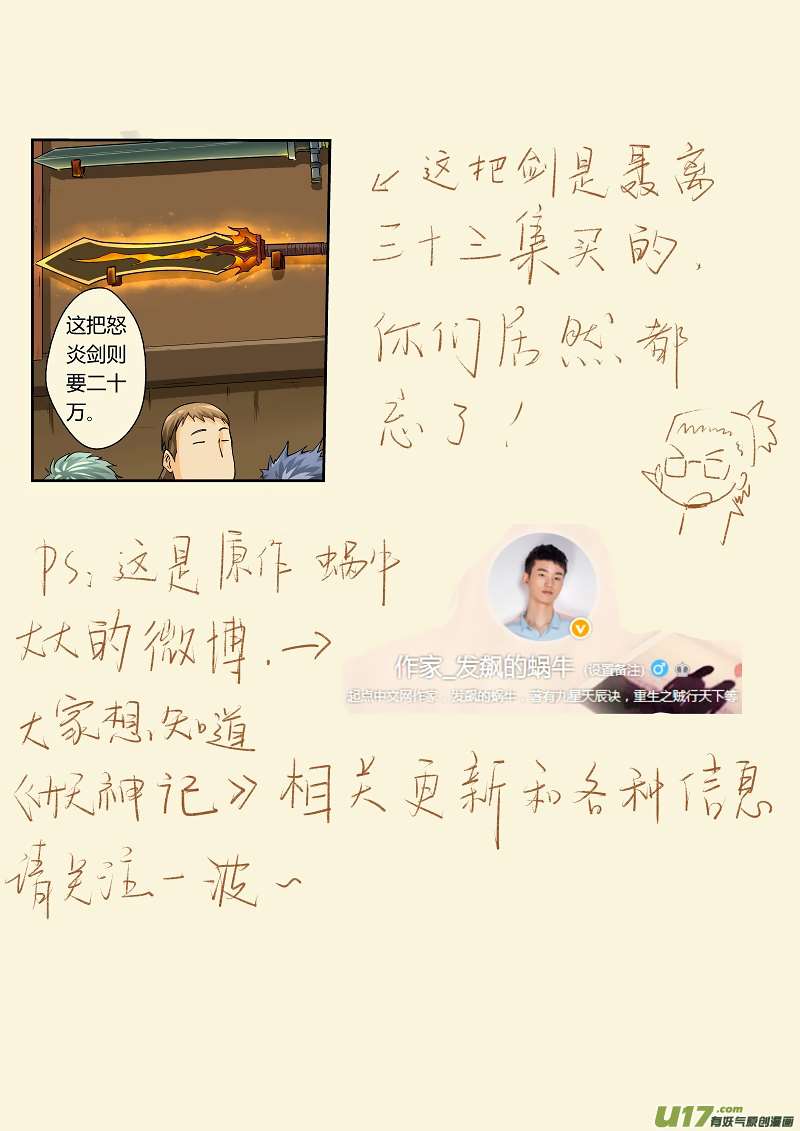 这把剑是聂离
三十三集买的，
你们居然都
忘了！
这把怒
炎剑则
要二十
万。
PS：这是原作 蜗牛
大大的微博，→
大家想知道
《妖神记》相关更新和各种信息
请关注一波~
作家_发飙的蜗牛 (设置备注)
起点中文网作家，发飙的蜗牛，著有九星天辰诀，重生之贼行天下等
U17.com
有妖气原创漫画